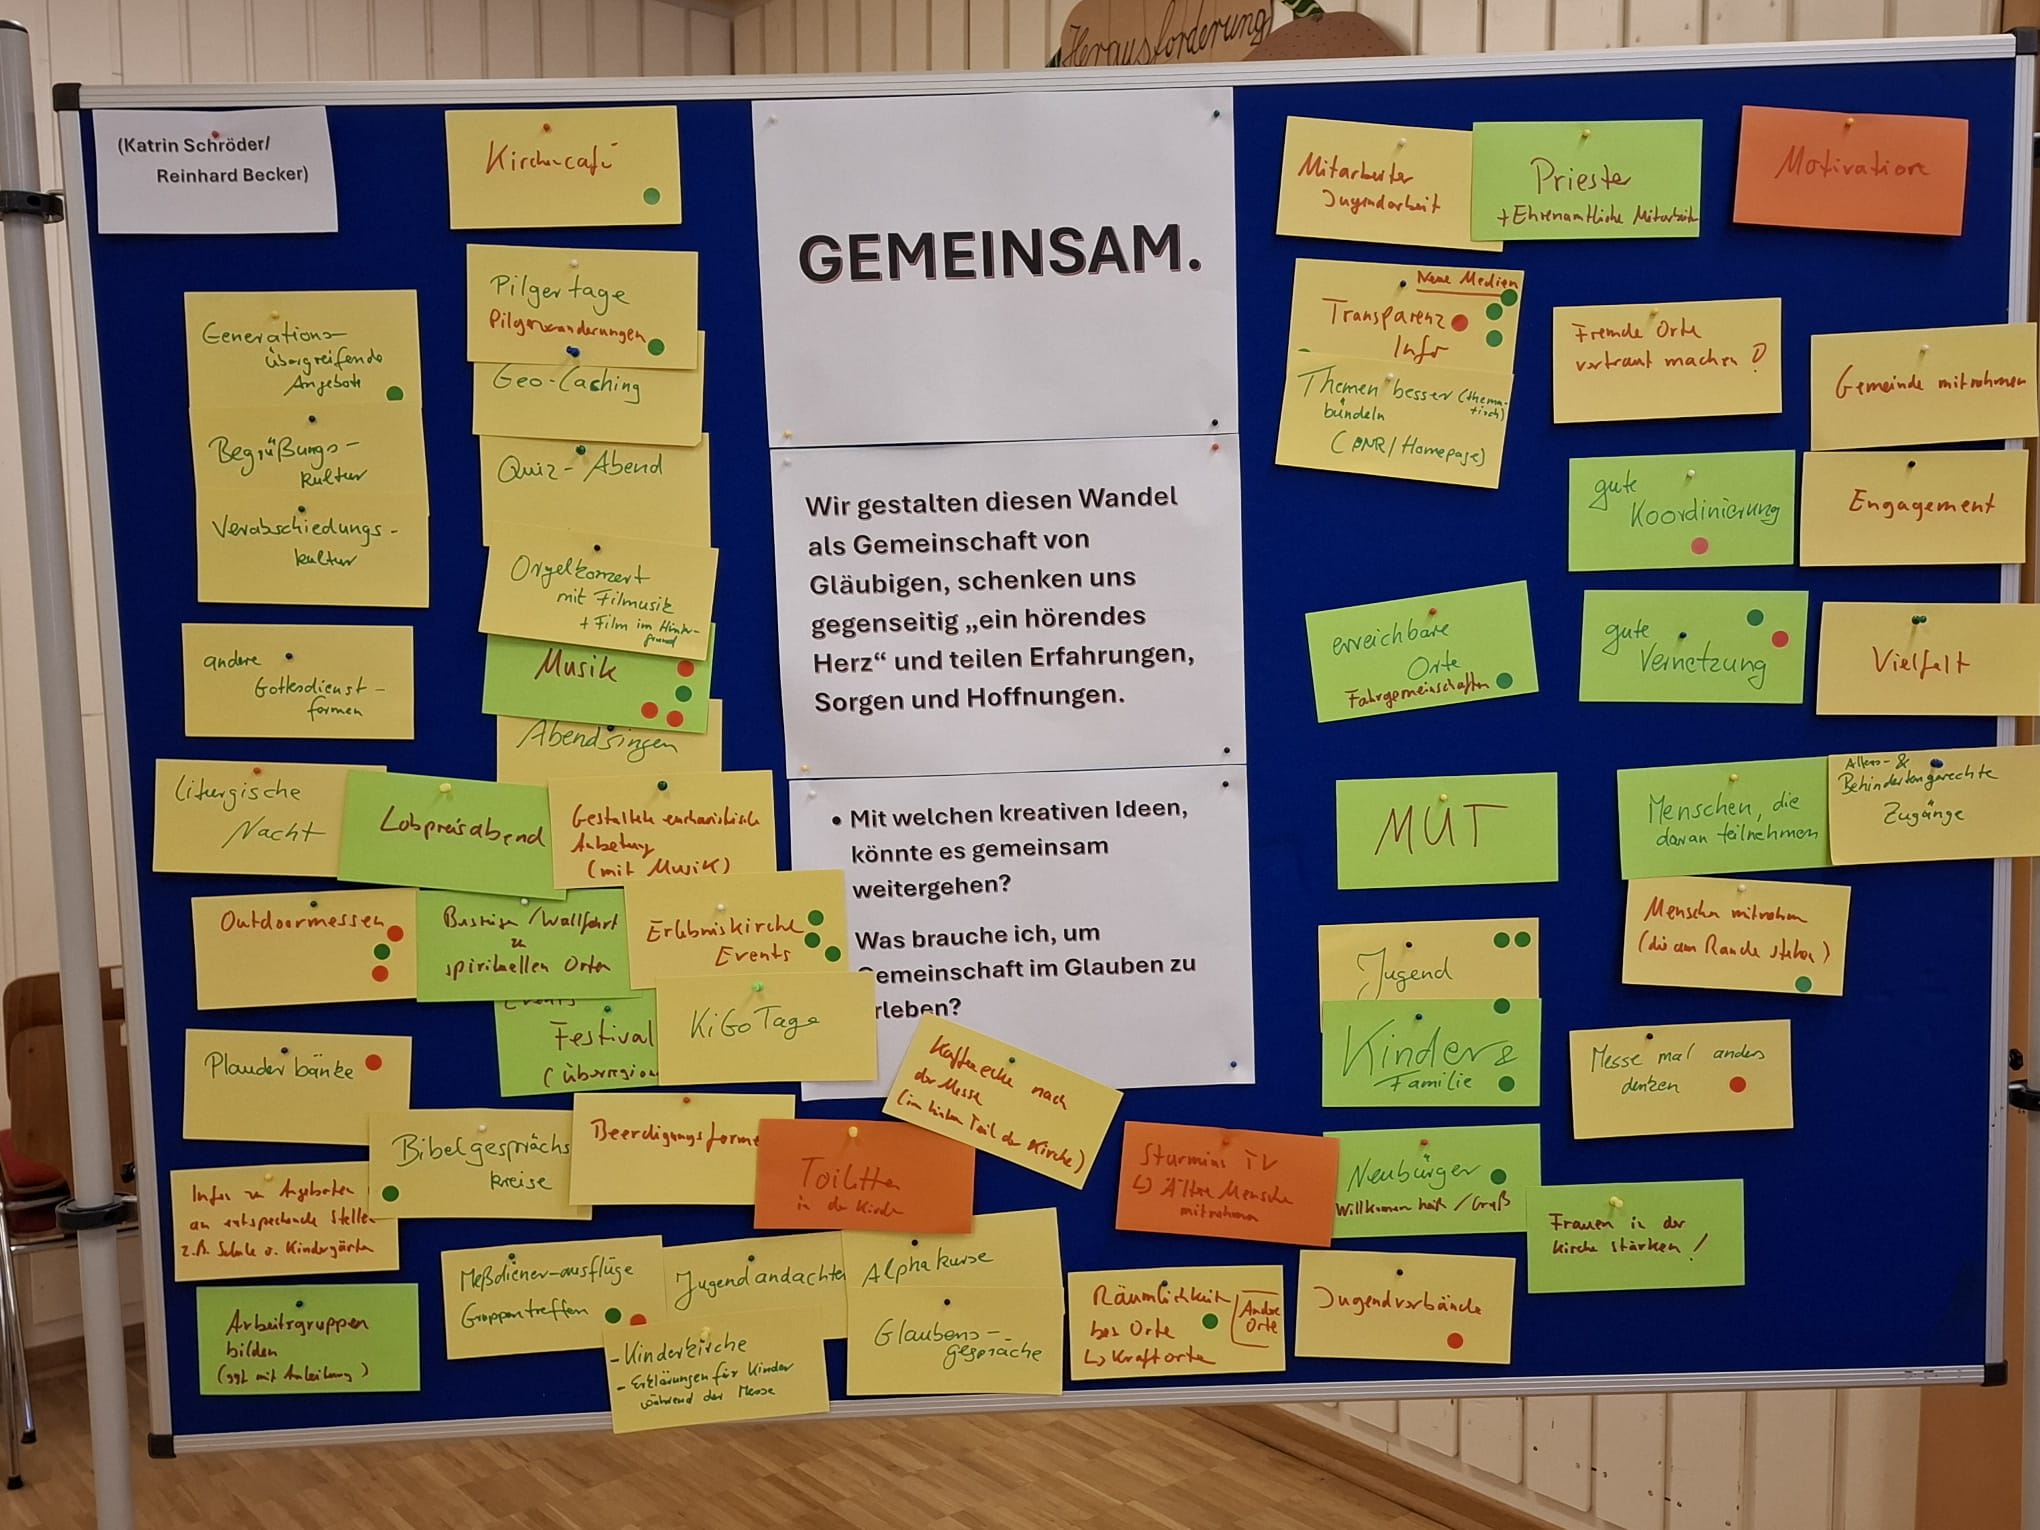 Herausforderung
(Katrin Schröder/
Reinhard Becker)
Kirchencafé
Pilgertage
Pilgerwanderungen
Geo-Caching
Quiz-Abend
Orgelkonzert
mit Filmusik
+ Film im Hinter-
grund
Musik
Abendsingen
Generations-
übergreifende
Angebote
Begrüßungs-
kultur
Verabschiedungs-
kultur
andere
Gottesdienst-
formen
Liturgische
Nacht
Lobpreisabend
Gestaltete eucharistische
Anbetung
(mit Musik)
Outdoormessen
Bustüge/Wallfahrt
zu
spirituellen Orten
Erlebniskirche
Events
Festival
(überregion
KiGo Tage
Plauderbänke
Bibelgesprächs
kreise
Beerdigungsforme
Toiletten
in der Kirche
Infos zu Angeboten
an entsprechende Stellen
z.B. Schule o. Kindergärten
Arbeitsgruppen
bilden
(ggf mit Anleitung)
Meßdiener-ausflüge
Gruppentreffen
Jugendandachten
- Kinderkirche
- Erklärungen für Kinder
während der Messe
Alphakurse
Glaubens-
gespräche
GEMEINSAM.
Wir gestalten diesen Wandel
als Gemeinschaft von
Gläubigen, schenken uns
gegenseitig „ein hörendes
Herz“ und teilen Erfahrungen,
Sorgen und Hoffnungen.
• Mit welchen kreativen Ideen,
könnte es gemeinsam
weitergehen?
Was brauche ich, um
Gemeinschaft im Glauben zu
erleben?
Kaffeeecke nach
der Messe
(im hinteren Teil der Kirche)
Mitarbeiter
Jugendarbeit
Priester
+ Ehrenamtliche Mitarbeiter
Motivation
Neue Medien
Transparenz
Infos
Themen besser (thema-
tisch)
bündeln
(PNR/Homepage)
Fremde Orte
vertraut machen?
Gemeinde mitnehmen
gute
Koordinierung
Engagement
erreichbare
Orte
Fahrgemeinschaften
gute
Vernetzung
Vielfalt
MUT
Menschen, die
daran teilnehmen
Alters- &
Behindertengerechte
Zugänge
Menschen mitnehmen
(die am Rande stehen)
Jugend
Kinder &
Familie
Messe mal anders
denken
Sturmius TV
↳ Ältere Menschen
mitnehmen
Neubürger
Willkommen heiß/Gruß
Frauen in der
Kirche stärken!
Räumlichkeit
bes Orte
↳ Kraftorte
Andere
Orte
Jugendverbände